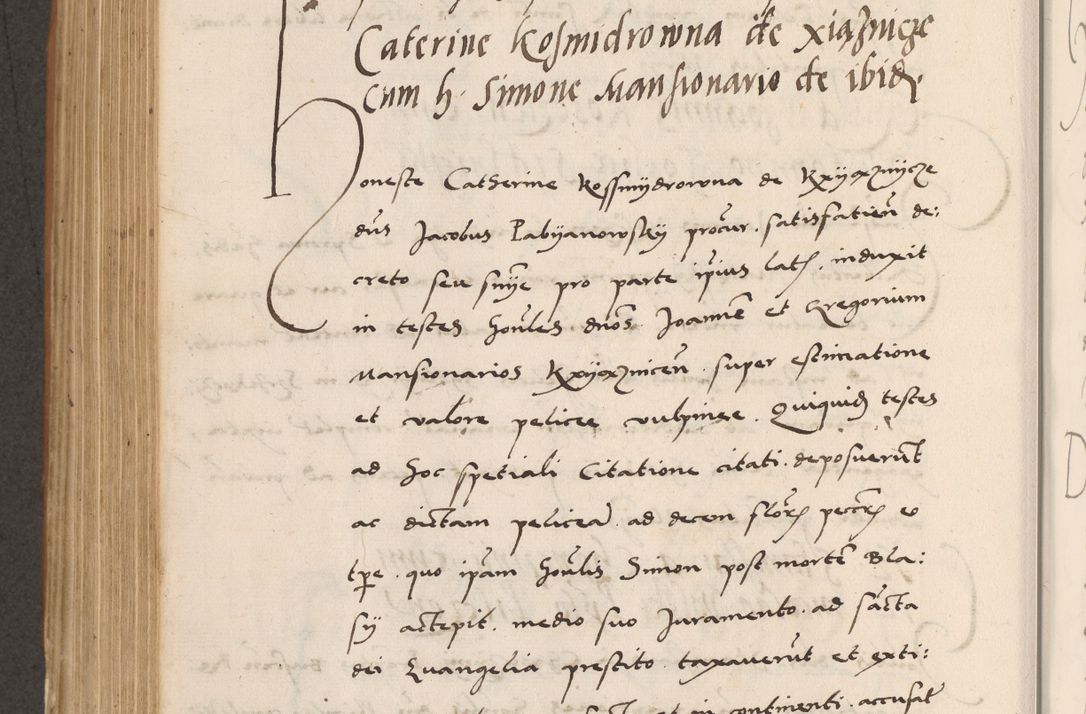 Caterine Kosmidrowna de Xiąznicze
cum h. Simone Mansionario de ibid.
Honeste Catherine Kossmydrowna de Kxyąznycze
dns Jacobus Pabyanowsky procur. satisfatien de:
creto seu snye pro parte ipius lat. induxit
in testes honles dnos Joannem et Gregorium
Mansionarios Kxyąznicen. super estimatione
et valore pelicee vulpinee. Quiquid testes
ad hoc spetiali Citatione citati. deposuerunt
ac dictam peliceam ad decem flor. peccr. eo
tpe. quo ipam honlis Simon post mortem Bla:
sy accepit. medio suo Juramento. ad sancta
dei Evangelia prestito. taxaverunt et exti:
et in continenti. accusat